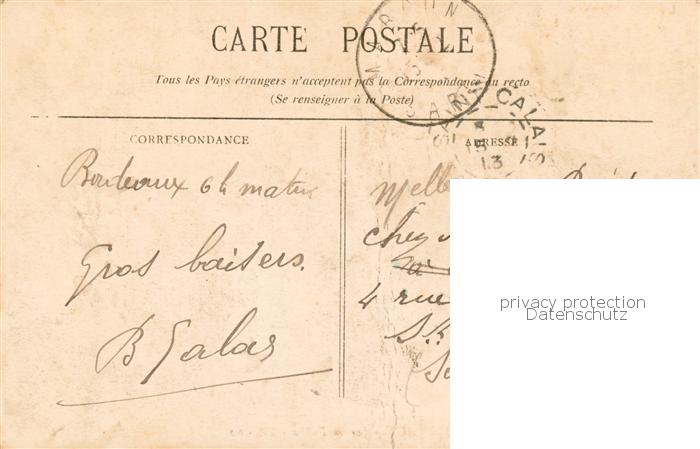 CARTE POSTALE
Tous les Pays étrangers n'acceptent pas la Correspondance au recto
(Se renseigner à la Poste)
CORRESPONDANCE
ADRESSE
Bordeaux 6 h matin
Gros baisers.
B Galas
Melle
chez
4 rue
St
CALAIS
15
13
privacy protection
Datenschutz